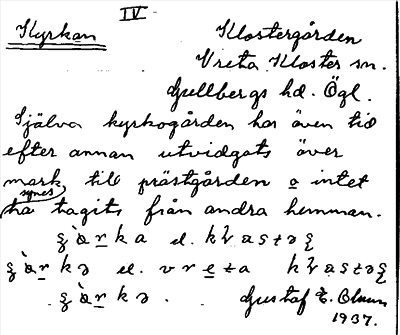 IV
Kyrkan
Klostergården
Vreta Kloster sn.
Gullbergs hd. Ögl.
Själva kyrkogården har även tid
efter annan utvidgats över
mark till prästgården o intet
synes
ha tagits från andra hemman.
el.
el. vreta
Gustaf
1937.